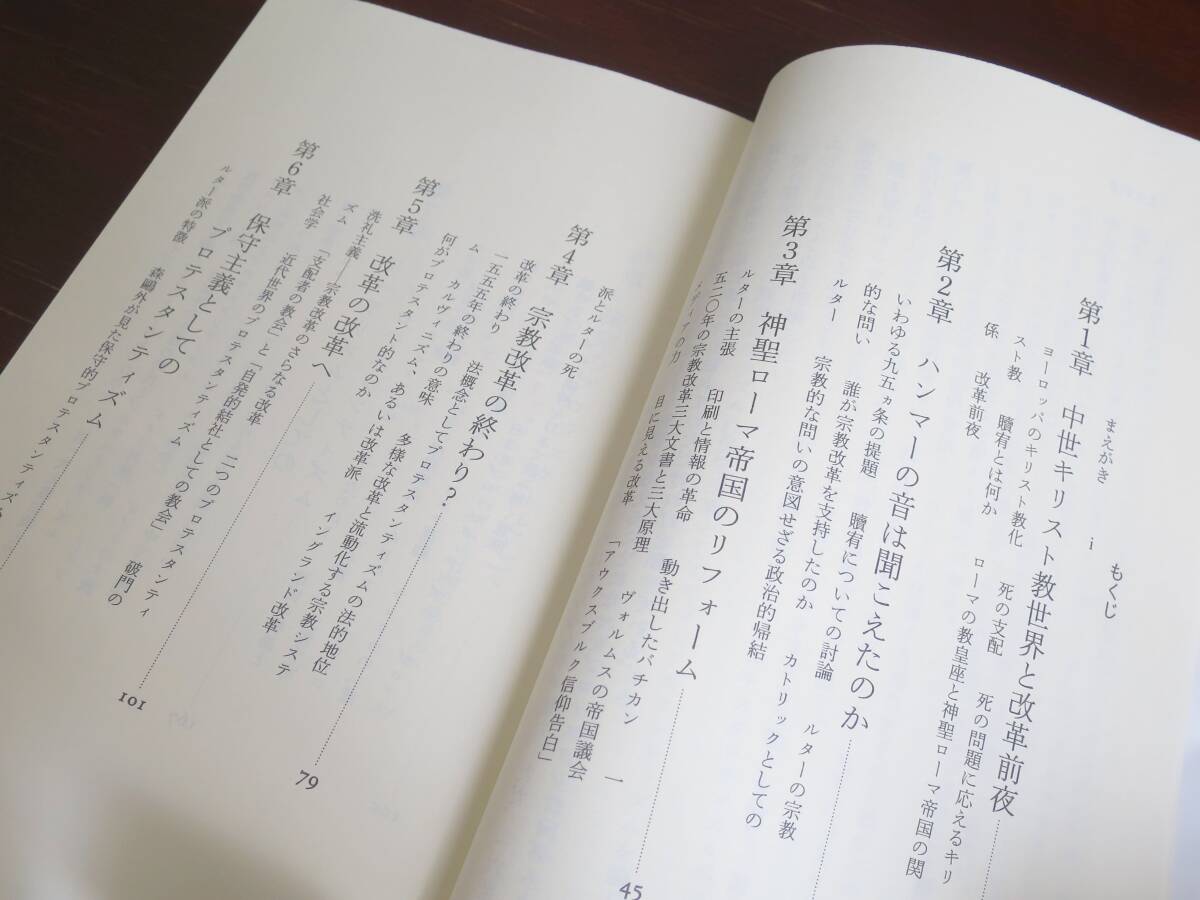 もくじ
まえがき i
第1章 中世キリスト教世界と改革前夜
ヨーロッパのキリスト教化 死の支配 死の問題に応えるキリ
スト教 贖宥とは何か ローマの教皇座と神聖ローマ帝国の関
係 改革前夜
第2章 ハンマーの音は聞こえたのか
いわゆる九五ヵ条の提題 贖宥についての討論 ルターの宗教
的な問い 誰が宗教改革を支持したのか カトリックとしての
ルター 宗教的な問いの意図せざる政治的帰結
第3章 神聖ローマ帝国のリフォーム 45
ルターの主張 印刷と情報の革命 動き出したバチカン 一
五二〇年の宗教改革三大文書と三大原理 ヴォルムスの帝国議会
メディアの力 目に見える改革 「アウクスブルク信仰告白」
派とルターの死
第4章 宗教改革の終わり? 79
改革の終わり 法概念としてプロテスタンティズムの法的地位
一五五五年の終わりの意味 多様な改革と流動化する宗教システ
ム カルヴィニズム、あるいは改革派 イングランド改革
何がプロテスタント的なのか
第5章 改革の改革へ 101
洗礼主義――宗教改革のさらなる改革 二つのプロテスタンティ
ズム 近代世界のプロテスタンティズム 破門の
社会学 「支配者の教会」と「自発的結社としての教会」
第6章 保守主義としての
プロテスタンティズム
ルター派の特徴 森鷗外が見た保守的プロテスタンティズム